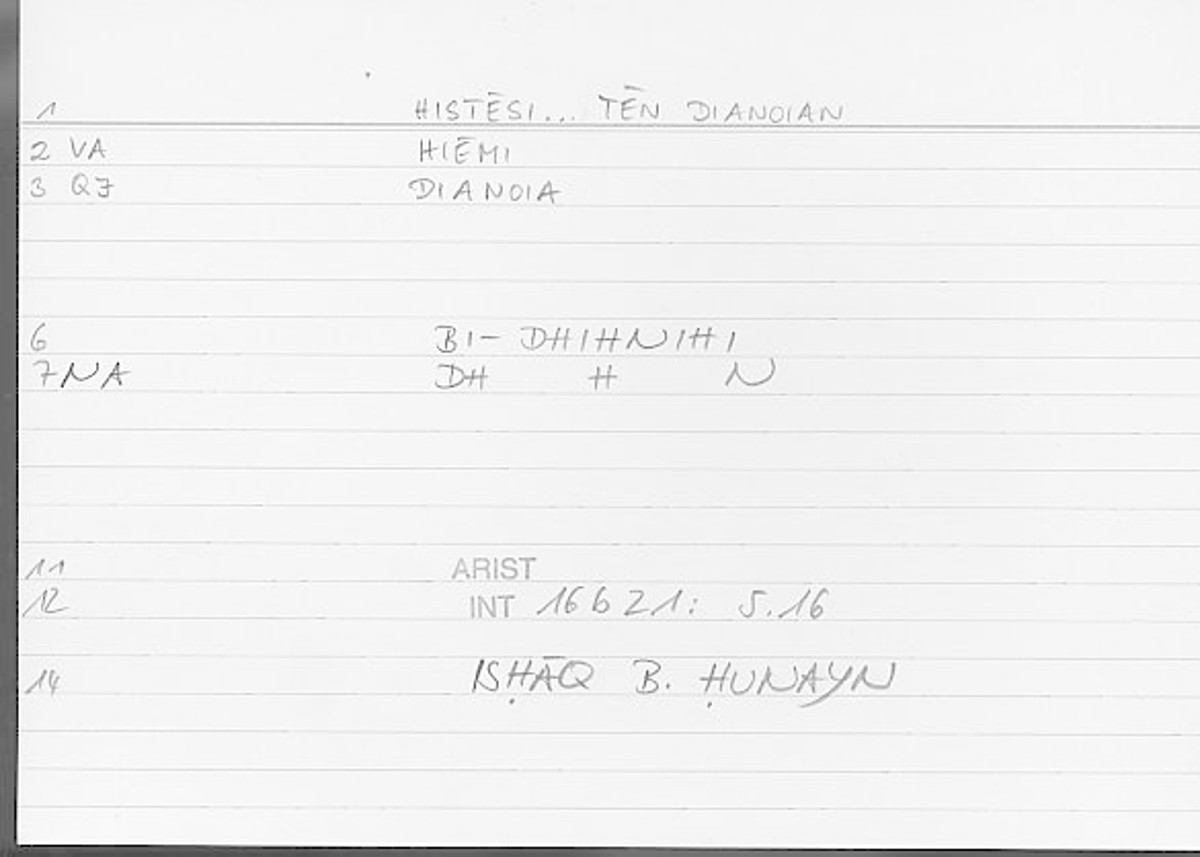 1 HISTĒSI... TĒN DIANOIAN
2 VA HIĒMI
3 QJ DIANOIA
6 BI- DHIHNIHI
7 NA DH H N
11 ARIST
12 INT 16621: 5.16
14 ISḤĀQ B. ḤUNAYN